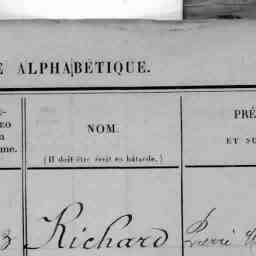 E ALPHABÉTIQUE.
NOM.
(Il doit être écrit en bâtarde.)
PRÉ
ET SU
me.
Richard Pierre